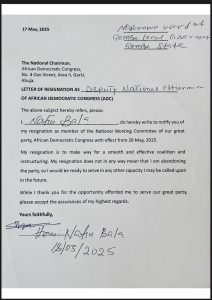 17 May, 2025
Nafarawa Ward of
Gombe Local Government
Gombe State
The National Chairman,
African Democratic Congress,
No. 4 Oyo Street, Area II, Garki,
Abuja.
LETTER OF RESIGNATION AS Deputy National Chairman
OF AFRICAN DEMOCRATIC CONGRESS (ADC)
The above subject hereby refers, please.
I Nafiu Bala do hereby write to notify you of
my resignation as member of the National Working Committee of our great
party, African Democratic Congress with effect from 26 May, 2025.
My resignation is to make way for a smooth and effective coalition and
restructuring. My resignation does not in any way mean that I am abandoning
the party, so I would be ready to serve in any other capacity I may be called upon
in the future.
While I thank you for the opportunity afforded me to serve our great party,
please accept the assurances of my highest regards.
Yours faithfully,
Hon Nafiu Bala
18/05/2025